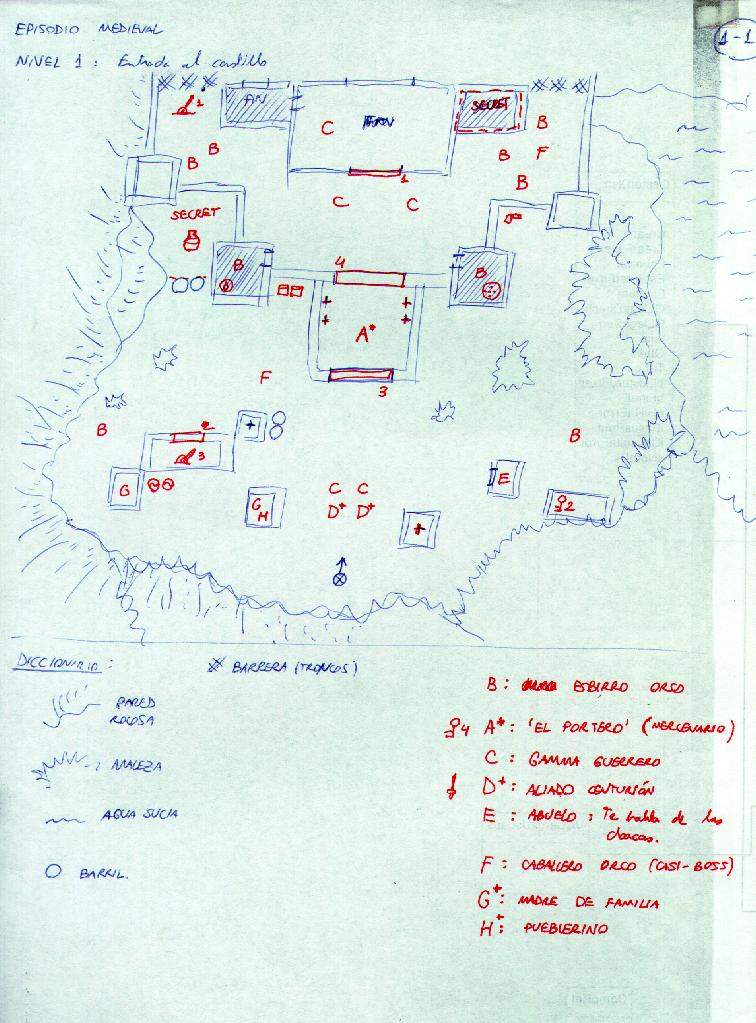 EPISODIO MEDIEVAL
1-1
NIVEL 1: Entrada al castillo
1
C
SECRET
B
B
B
B
F
B
1
C
C
SECRET
B
4
B
A*
F
3
B
2
B
3
G
G
H
C C
D+ D+
E
2
DICCIONARIO:
BARRERA (TRONCOS)
PARED
ROCOSA
MALEZA
AGUA SUCIA
BARRIL.
B: ESBIRRO ORCO
4 A*: 'EL PORTERO' (MERCENARIO)
C: GAMMA GUERRERO
D+: ALIADO CENTURIÓN
E: ABUELO: Te habla de las
cloacas.
F: CABALLERO ORCO (CASI-BOSS)
G+: MADRE DE FAMILIA
H+: PUEBLERINO